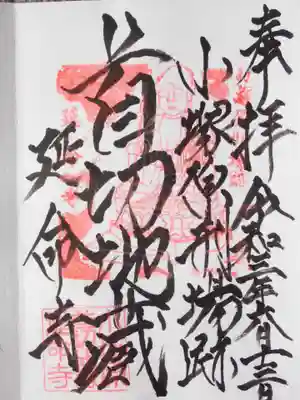 奉拝 令和三年六月十三日
小塚原刑場跡
首切地蔵
延命寺